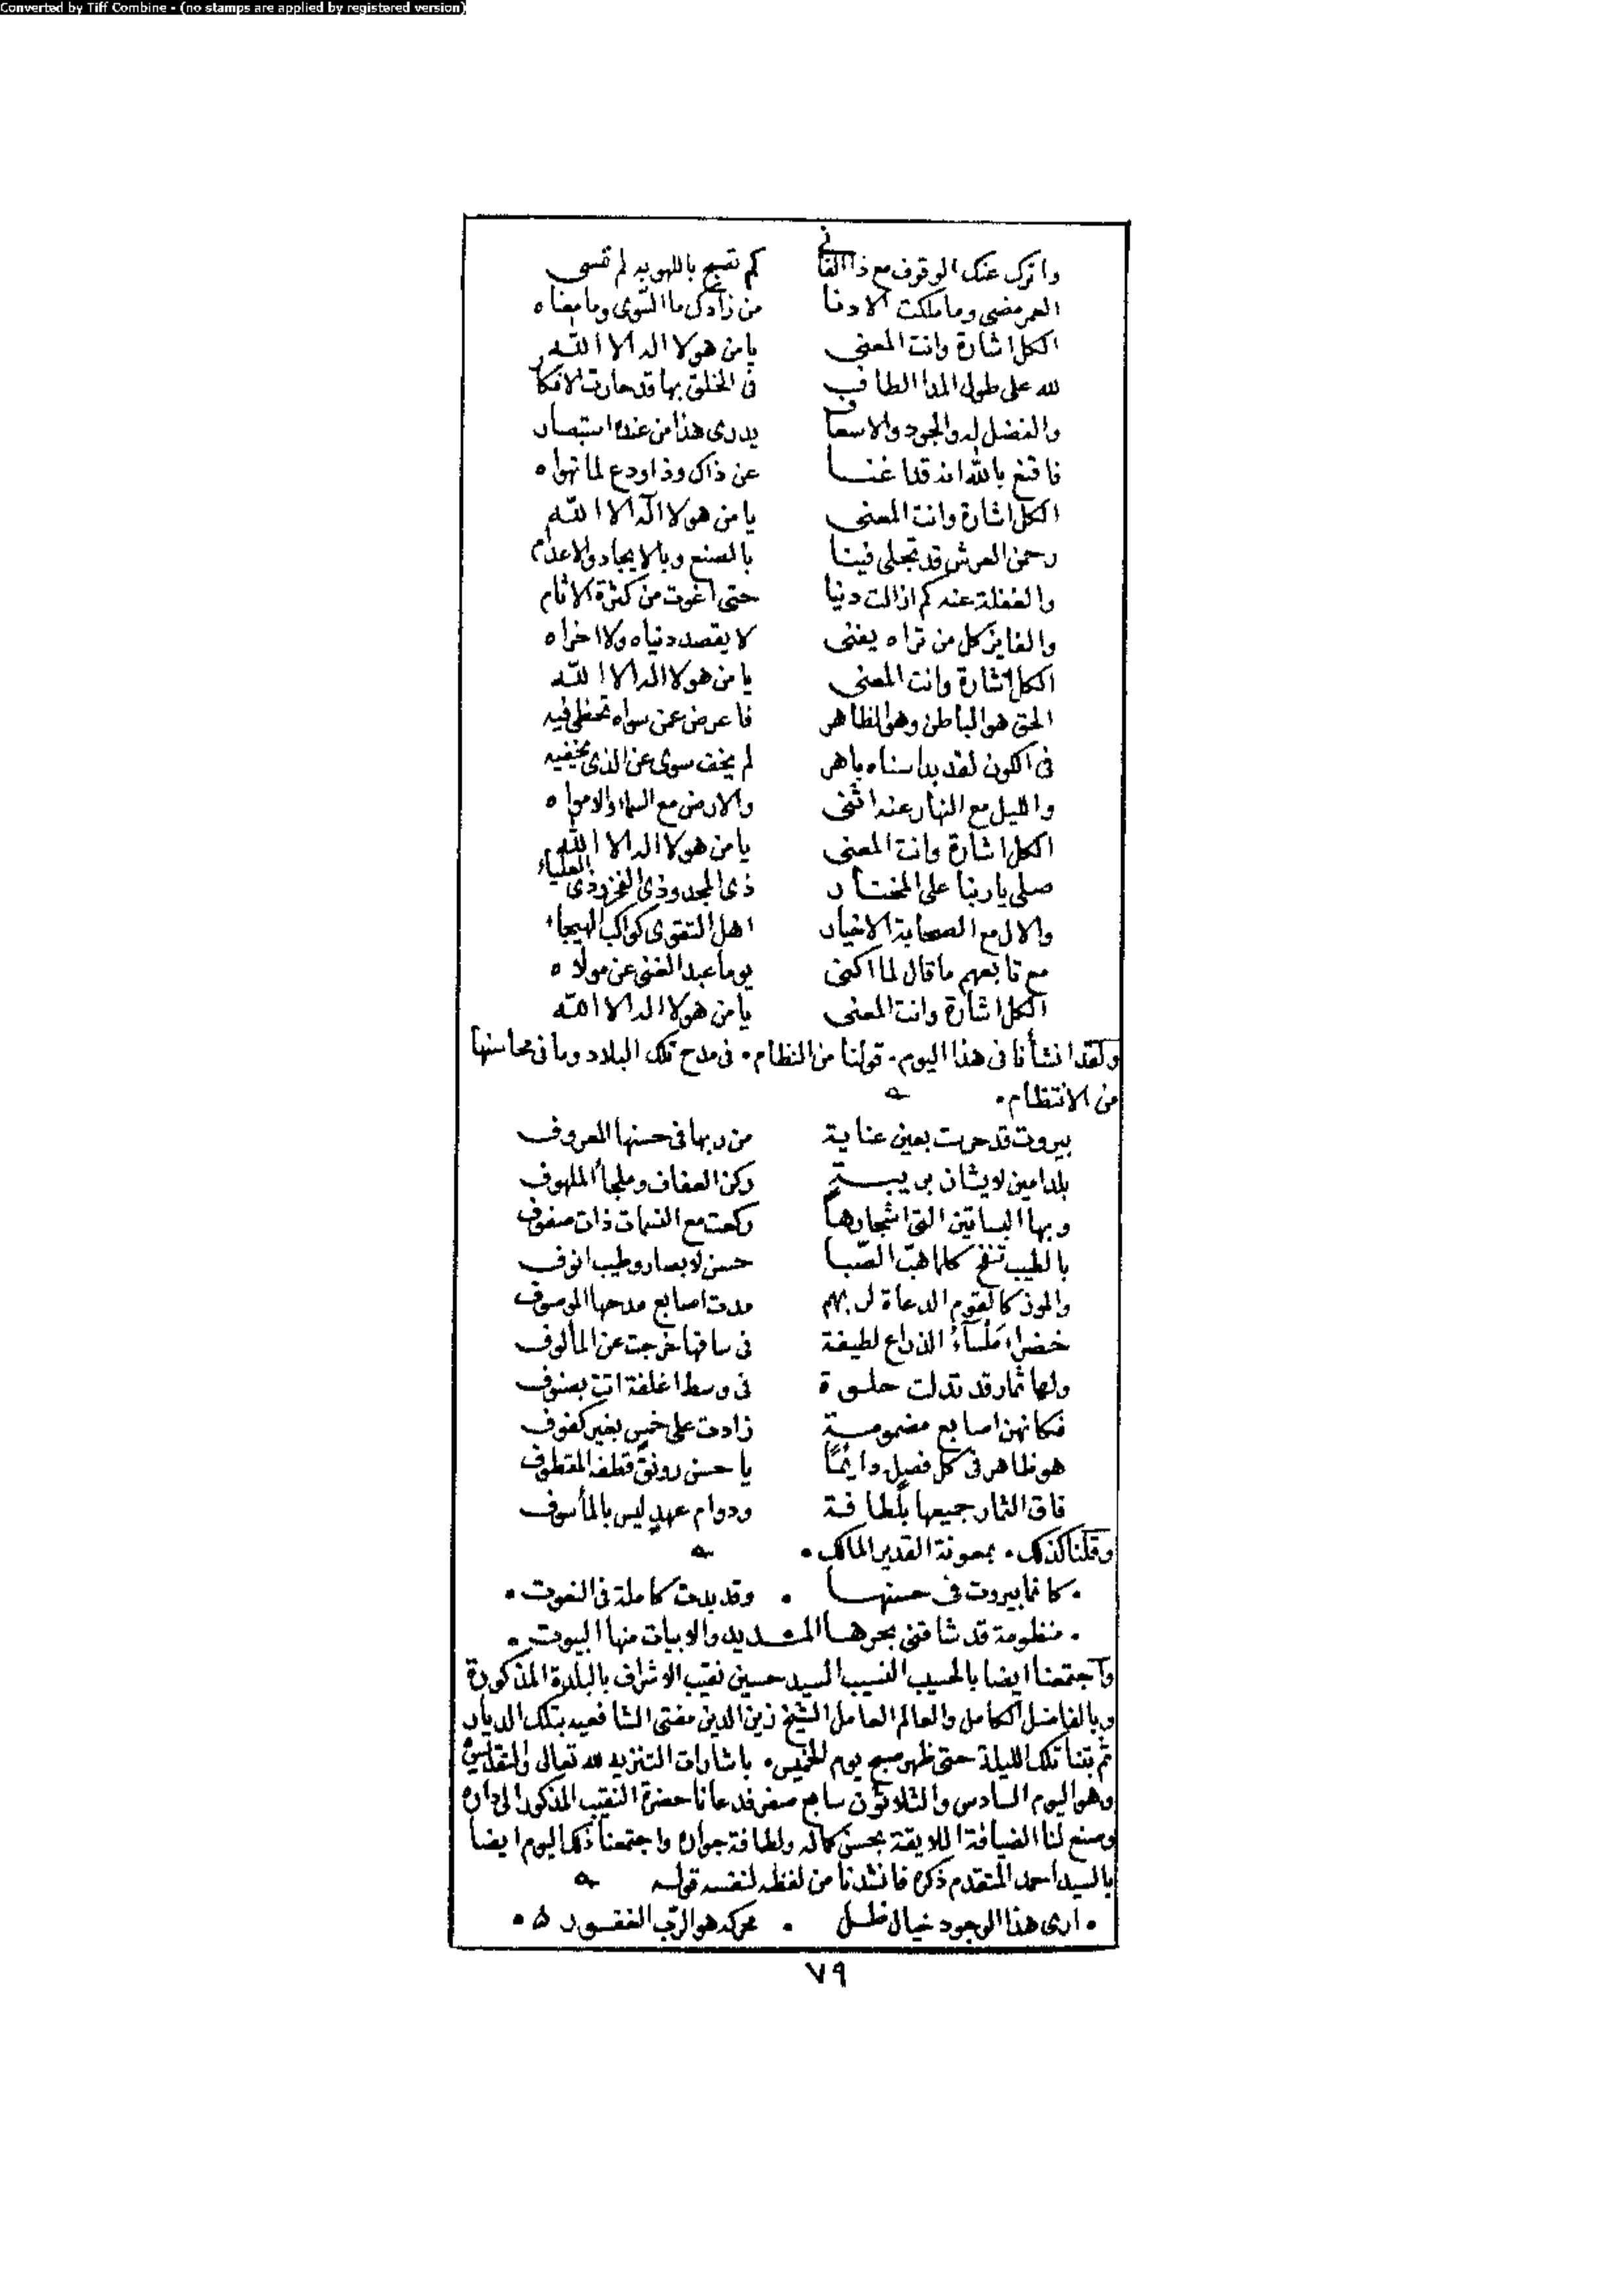 Converted by Tiff Combine - (no stamps are applied by registered version)
واترك عنك الوقوف مع ذا الفاني كم تصبح باللهو به لم تمسى
العمر مضى وما ملكت الادنا من زادك ما التوى وما معناه
الكل اشارة وانت المعنى يا من هو لا اله الا الله
لله على طول المدا الطاف فى الخلق بها قد حارت الافكار
والفضل له والجود والاسعاف يدرى هذا من عنده استبصار
فاقنع بالله انه قد اغنا عن ذاك وذا ودع لما تهواه
الكل اشارة وانت المعنى يا من هو لا اله الا الله
رحمن العرش قد تجلى فينا بالصنع وبالايجاد والاعدام
والغفلة عنه كم ازالت دنيا حتى اغوت من كثرة الاثام
والفايز كل من تراه يفنى لا يقصد دنياه ولا اخراه
الكل اشارة وانت المعنى يا من هو لا اله الا الله
الحق هو الباطن وهو الظاهر فاعرض عن سواه تحظى فيه
فى الكون لقد بدا سناه باهر لم يخف سوى عن الذى يخفيه
والليل مع النهار عنه اثنى والارض مع السماء والامواه
الكل اشارة وانت المعنى يا من هو لا اله الا الله
صلى يا ربنا على المختار ذى المجد وذى الفخر وذى العلياء
والال مع الصحابة الاخيار اهل التقوى كواكب الهيجاء
مع تابعهم ما قال لما اكنى يوما عبد الغنى عن مولاه
الكل اشارة وانت المعنى يا من هو لا اله الا الله
ولقد انشأنا فى هذا اليوم. قولنا من النظام. فى مدح تلك البلاد وما فى محاسنها
من الانتظام.
بيروت قد حرست بعين عناية من ربها فى حسنها المعروف
بلد امين لا يشان بريبة ركن العفاف وملجأ الملهوف
وبها البساتين التى اشجارها ركعت مع النسمات ذات صفوف
بالطيب تنفح كلما هبّ الصّبا حسن لابصار وطيب انوف
والموز كالقوم الدعاة لربهم مدت اصابع مدحها الموصوف
خضراء ملسآء الذراع لطيفة فى ساقها خرجت عن المألوف
ولها ثمار قد تدلت حلوة فى وسط اغلفة اتت بصنوف
فكانهن اصابع مضمومة زادت على خمس بغير كفوف
هو ظاهر فى كل فصل دائمًا يا حسن رونق قطفه المقطوف
فاق الثمار جميعها بلطافة ودوام عهد ليس بالمأسوف
وقلنا كذلك. بمعونة القدير المالك.
. كانما بيروت فى حسنها . وقد بدت كاملة فى النعوت .
. منظومة قد شاقنى بحرها المديد والابيات منها البيوت .
واجتمعنا ايضا بالحسيب النسيب السيد حسين نقيب الاشراف بالبلدة المذكورة
وبالفاضل الكامل والعالم العامل الشيخ زين الدين مفتى الشافعيه بتلك الديار
ثم بتنا تلك الليلة حتى ظهر صبح يوم الخميس. باشارات التنزيه لله تعالى والتقديس
وهو اليوم السادس والثلاثون سابع صفر فدعانا حضرة النقيب المذكور الى داره
وصنع لنا الضيافة اللايقة بحسن كماله ولطافة جواره واجتمعنا ذلك اليوم ايضا
بالسيد احمد المتقدم ذكره فانشدنا من لفظه لنفسه قوله
. ارى هذا الوجود خيال ظل . محركه هو الرّب الغفور .
٧٩